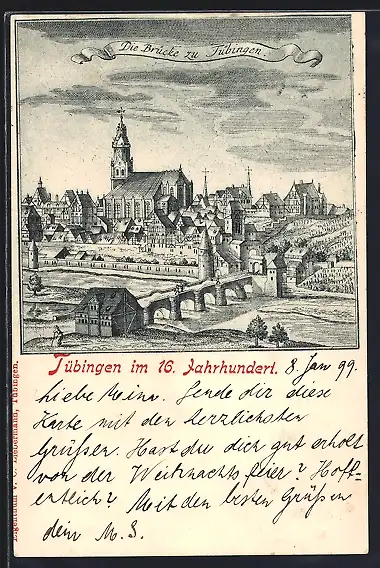 Die Brücke zu Tübingen
Tübingen im 16. Jahrhundert. 8. Jan 99.
Liebe Mina. Sende dir diese
Karte mit den herzlichsten
Grüßen. Hast du dich gut erholt
von der Weihnachtsfeier? Hoff-
entlich? Mit den besten Grüßen
dein M. S.
Eigenthum v. C. Liebermann, Tübingen.